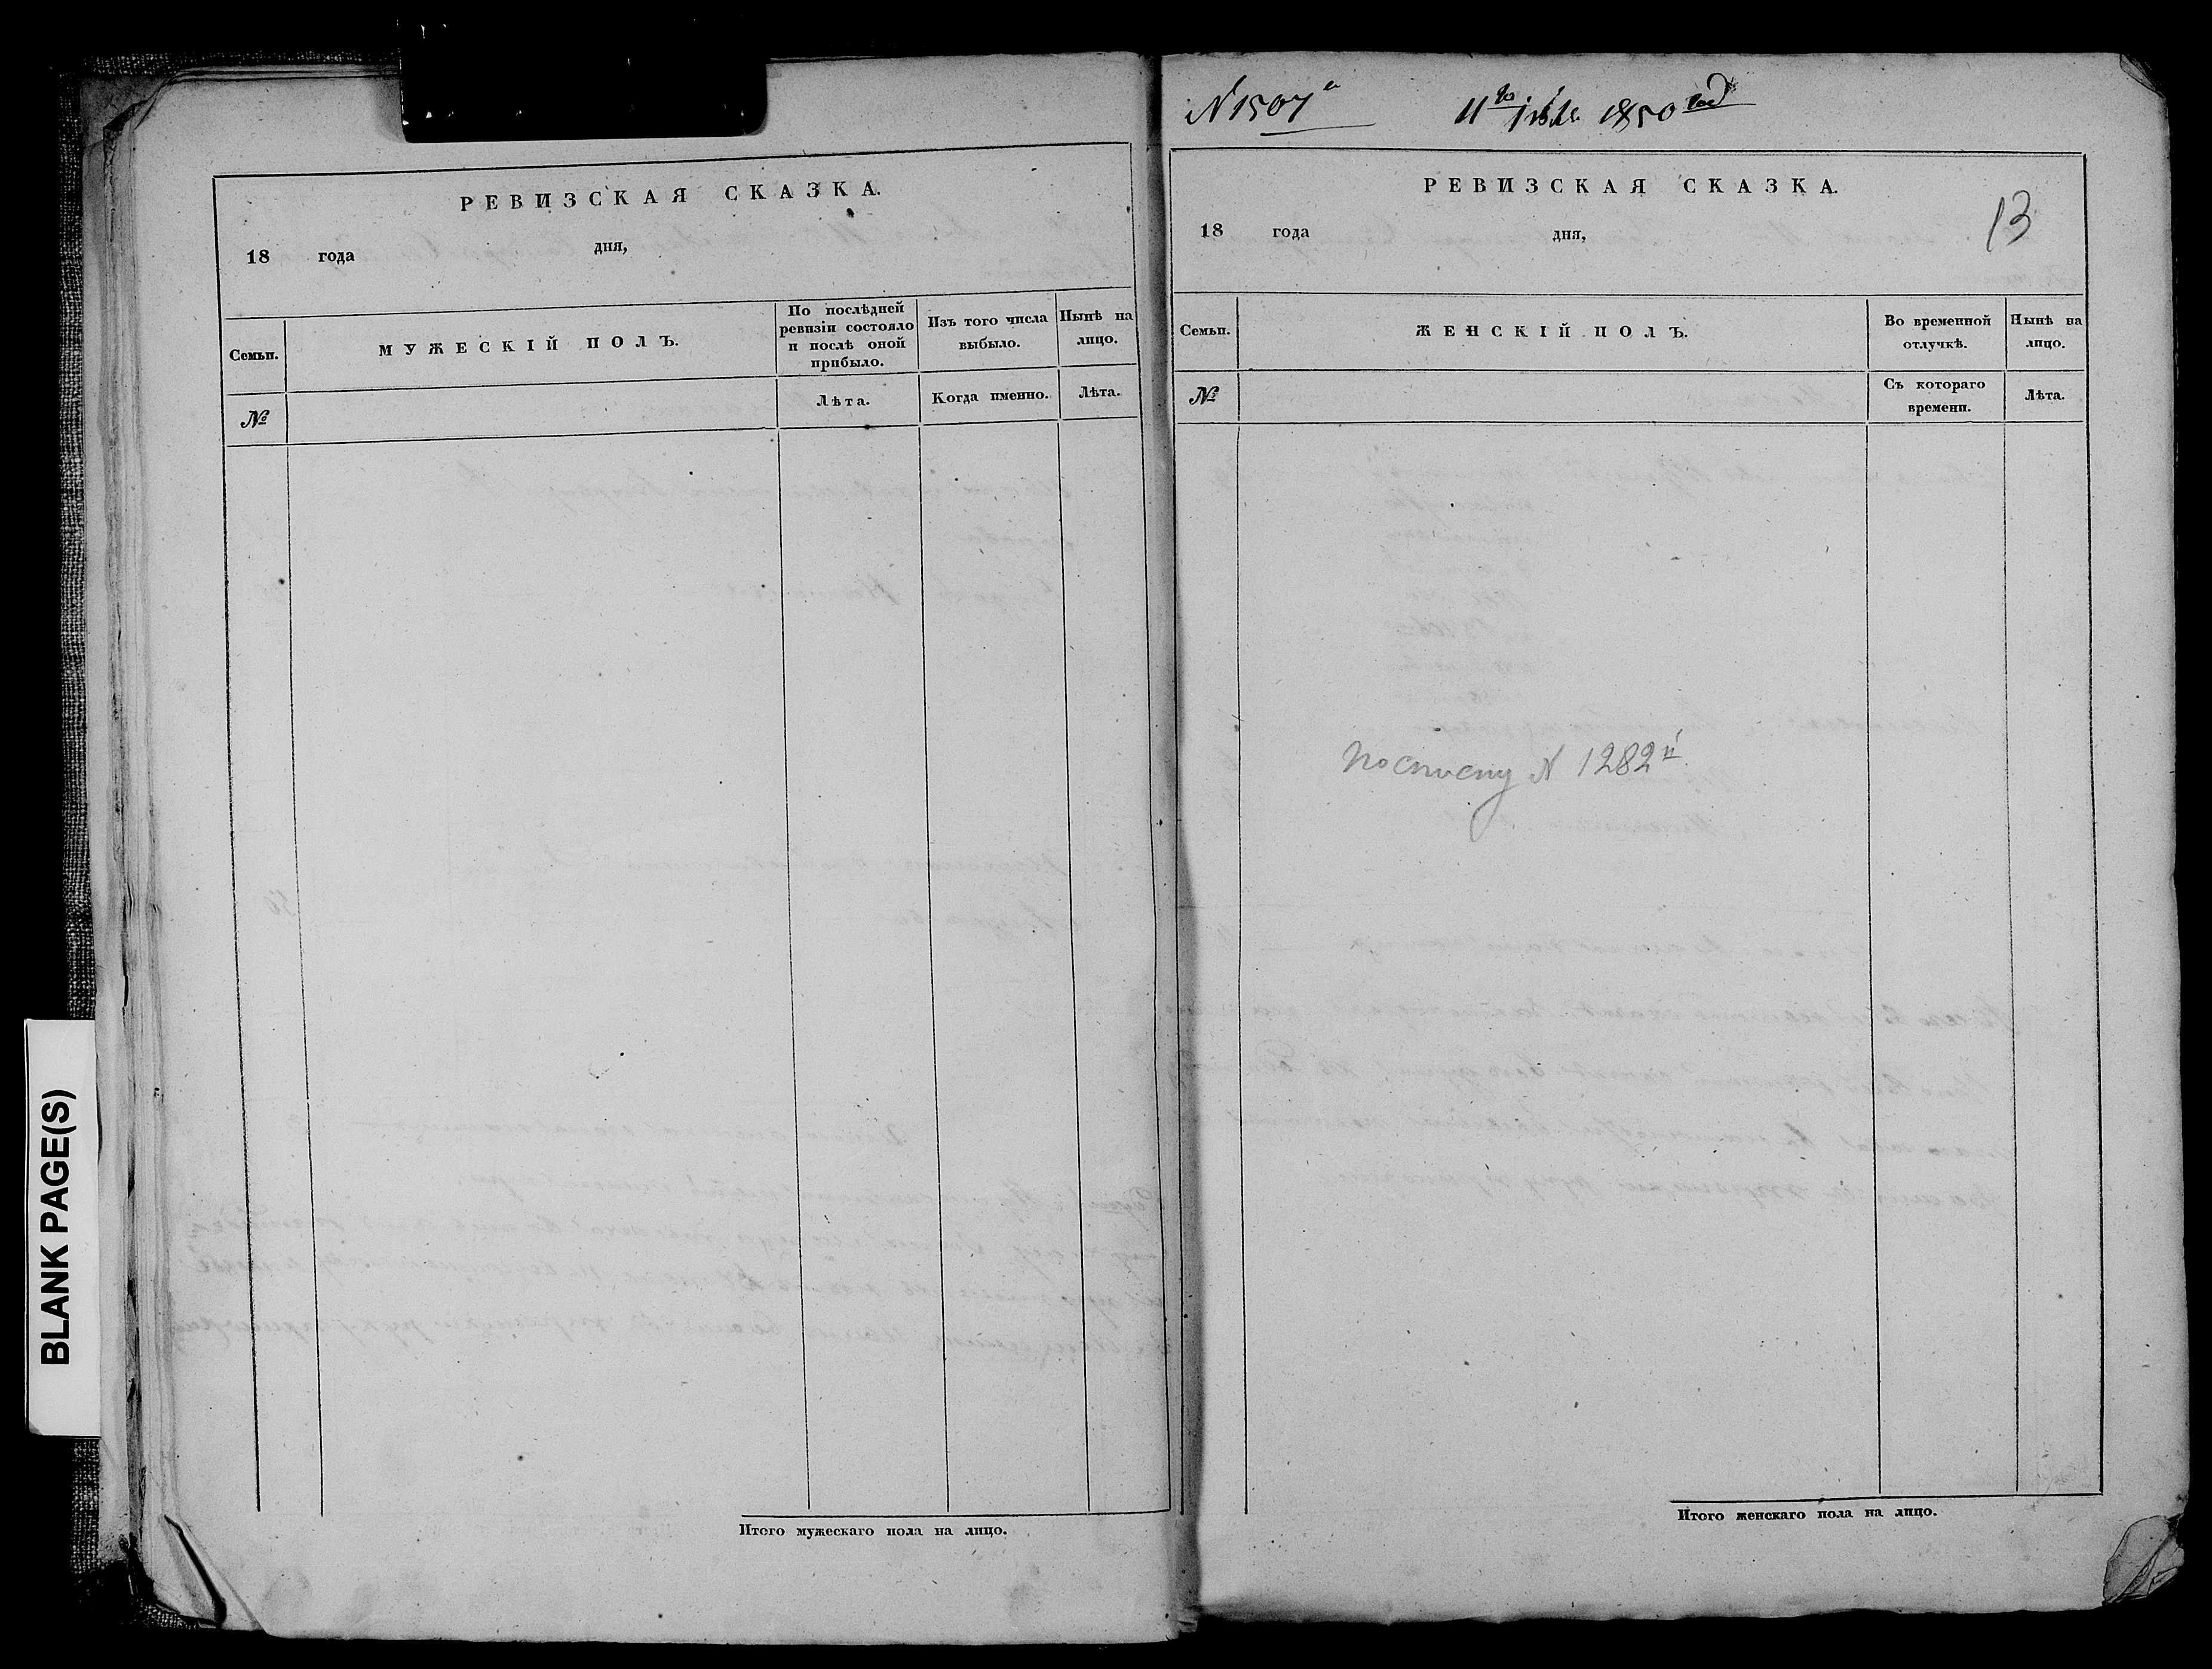 BLANK PAGE(S)
РЕВИЗСКАЯ СКАЗКА.
18 года дня,
Семьи.
МУЖЕСКІЙ ПОЛЪ.
По послѣдней
ревизіи состояло
и послѣ оной
прибыло.
Изъ того числа
выбыло.
Нынѣ на
лицо.
№
Лѣта.
Когда именно.
Лѣта.
Итого мужескаго пола на лицо.
N 1507
11го 1850 год
РЕВИЗСКАЯ СКАЗКА.
13
18 года дня,
Семьи.
ЖЕНСКІЙ ПОЛЪ.
Во временной
отлучкѣ.
Нынѣ на
лицо.
№
Съ котораго
времени.
Лѣта.
по списку N 1282й
Итого женскаго пола на лицо.